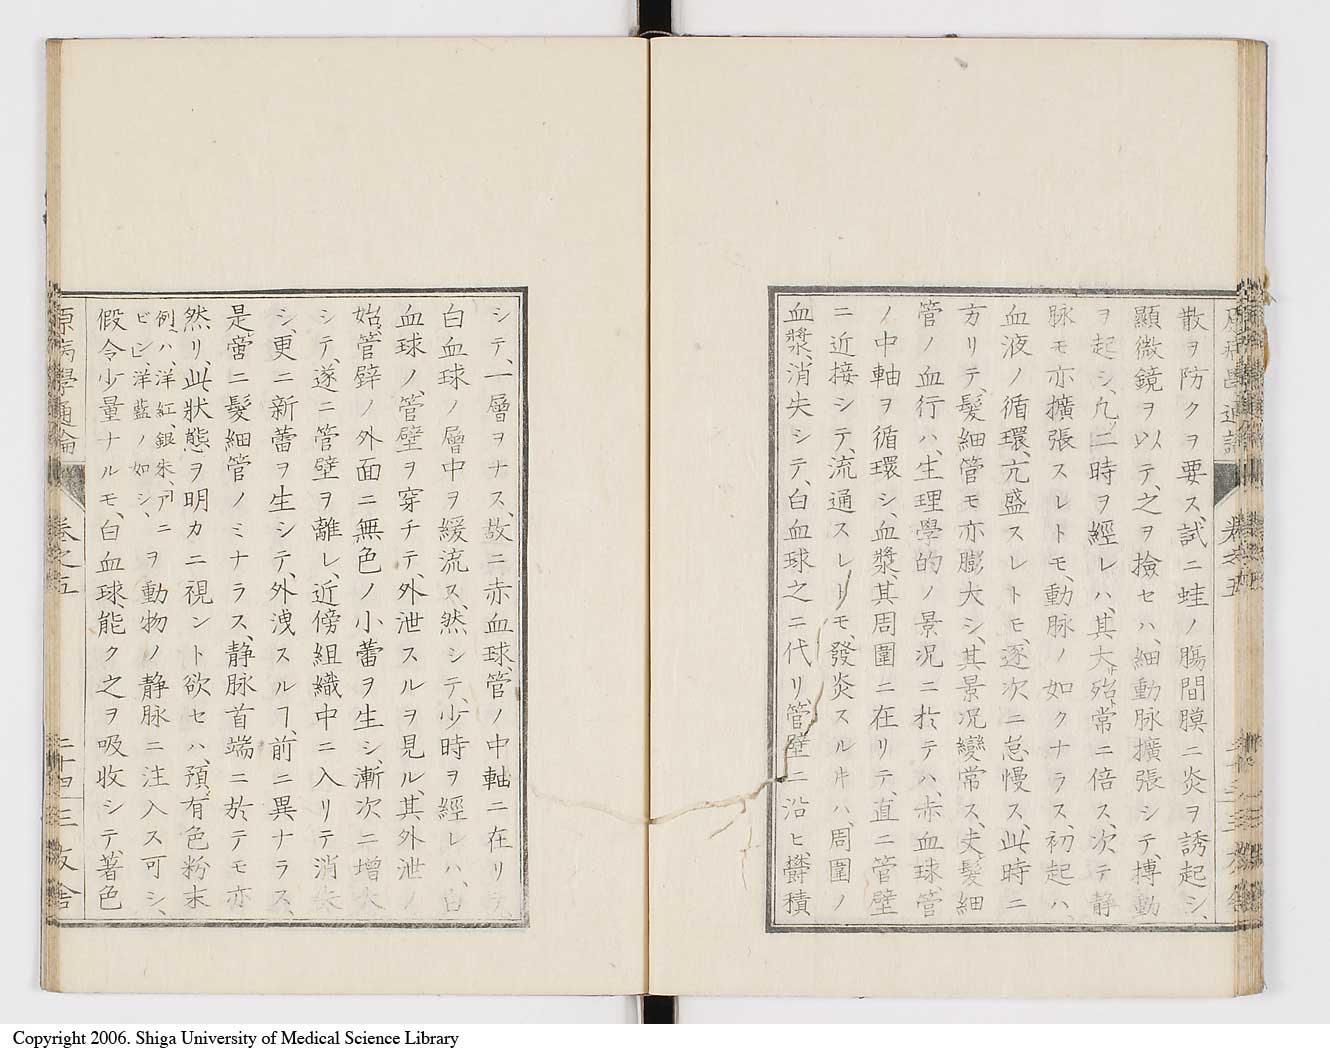 散ヲ防クヲ要ス、試ニ蛙ノ膓間膜ニ炎ヲ誘起シ、
顯微鏡ヲ以テ、之ヲ撿セハ、細動脉擴張シテ、搏動
ヲ起シ、凢ソ二時ヲ經レハ、其大サ殆ト常ニ倍ス、次テ靜
脉モ亦擴張スレトモ、動脉ノ如クナラス、初起ハ、
血液ノ循環、亢盛スレトモ、逐次ニ怠慢ス、此時ニ
方リテ、髮細管モ亦膨大シ、其景况變常ス、夫髮細
管ノ血行ハ、生理學的ノ景况ニ於テハ、赤血球、管
ノ中軸ヲ循環シ、血漿、其周圍ニ在リテ、直ニ管壁
ニ近接シテ、流通スレ𪜈モ、發炎スル片ハ、周圍ノ
血漿、消失シテ、白血球之ニ代リ、管壁ニ沿ヒ欝積
シテ、一層ヲナス、故ニ赤血球、管ノ中軸ニ在リテ、
白血球ノ層中ヲ緩流ス、然シテ、少時ヲ經レハ、白
血球ノ、管壁ヲ穿チテ、外泄スルヲ見ル、其外泄ノ
始、管壁ノ外面ニ無色ノ小蕾ヲ生シ、漸次ニ増大
シテ、遂ニ管壁ヲ離レ、近傍組織中ニ入リテ消失
シ、更ニ新蕾ヲ生シテ、外洩スルヿ、前ニ異ナラス、
是、啻ニ髮細管ノミナラス、靜脉首端ニ於テモ亦
然リ、此狀態ヲ明カニ視ント欲セハ、預有色粉末
例ハ、洋紅、銀朱、アニ
ヒン洋藍ノ如シ、
ヲ動物ノ靜脉ニ注入ス可シ、
假令少量ナルモ、白血球、能ク之ヲ吸收シテ、著色
原病學通論
卷之五
二十四
三友舍
Copyright 2006. Shiga University of Medical Science Library